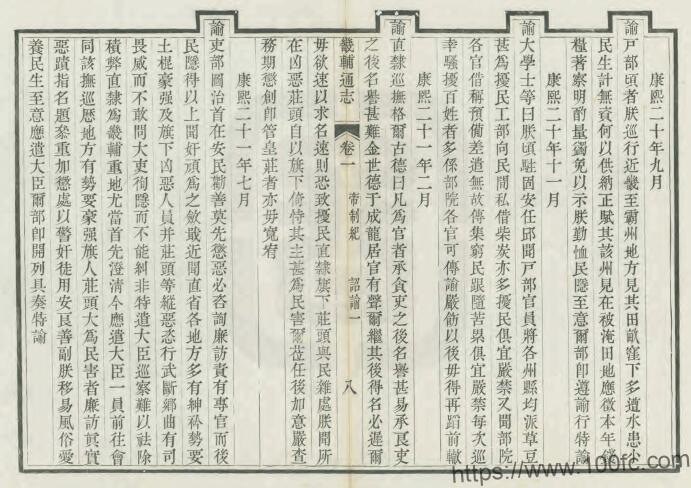 康熙二十年九月
諭戶部頃者朕巡行近畿至霸州地方見其田畝窪下多遭水患小
民生計無資何以供納正賦其該州見在被淹田地應徵本年錢
糧著察明酌量蠲免以示朕勤恤民隱至意爾部卽遵諭行特諭
康熙二十年十一月
諭大學士等曰朕頃駐固安任邱聞戶部官員將各州縣均派草豆
甚爲擾民工部向民間私借柴炭亦多擾民俱宜嚴禁又聞部院
各官借稱預備差遣無故傳集窮民跟隨苦累俱宜嚴禁每次巡
幸騷擾百姓者多係部院各官可傳諭嚴飭以後毋得再蹈前轍
康熙二十一年二月
諭直隸巡撫格爾古德曰凡爲官者承貪吏之後名譽甚易承良吏
之後名譽甚難金世德于成龍居官有聲爾繼其後得名必遲爾
畿輔通志 卷一 帝制紀 詔諭一 八
毋欲速以求名速則恐致擾民直隸旗下莊頭與民雜處朕聞所
在凶惡莊頭自以旗下倚恃其主甚爲民害爾莅任後如意嚴查
務期懲創卽管皇莊者亦毋寬宥
康熙二十一年七月
諭吏部圖治首在安民勸善莫先懲惡必咨詢廉訪責有專官而後
民隱得以上聞奸頑爲之斂戢近聞直省各地方多有紳衿勢要
土棍豪强及旗下凶惡人員幷莊頭等縱惡恣行武斷鄉曲有司
畏威而不敢問大吏徇隱而不能糾非特遣大臣巡察難以祛除
積弊直隸爲畿輔重地尤當首先澄淸今應遣大臣一員前往會
同該撫巡歷地方有勢要豪强旗人莊頭大爲民害者廉訪眞實
惡蹟指名題參重加懲處以警奸徒用安良善副朕移易風俗愛
養民生至意應遣大臣爾部卽開列具奏特諭
https://www.100fc.com